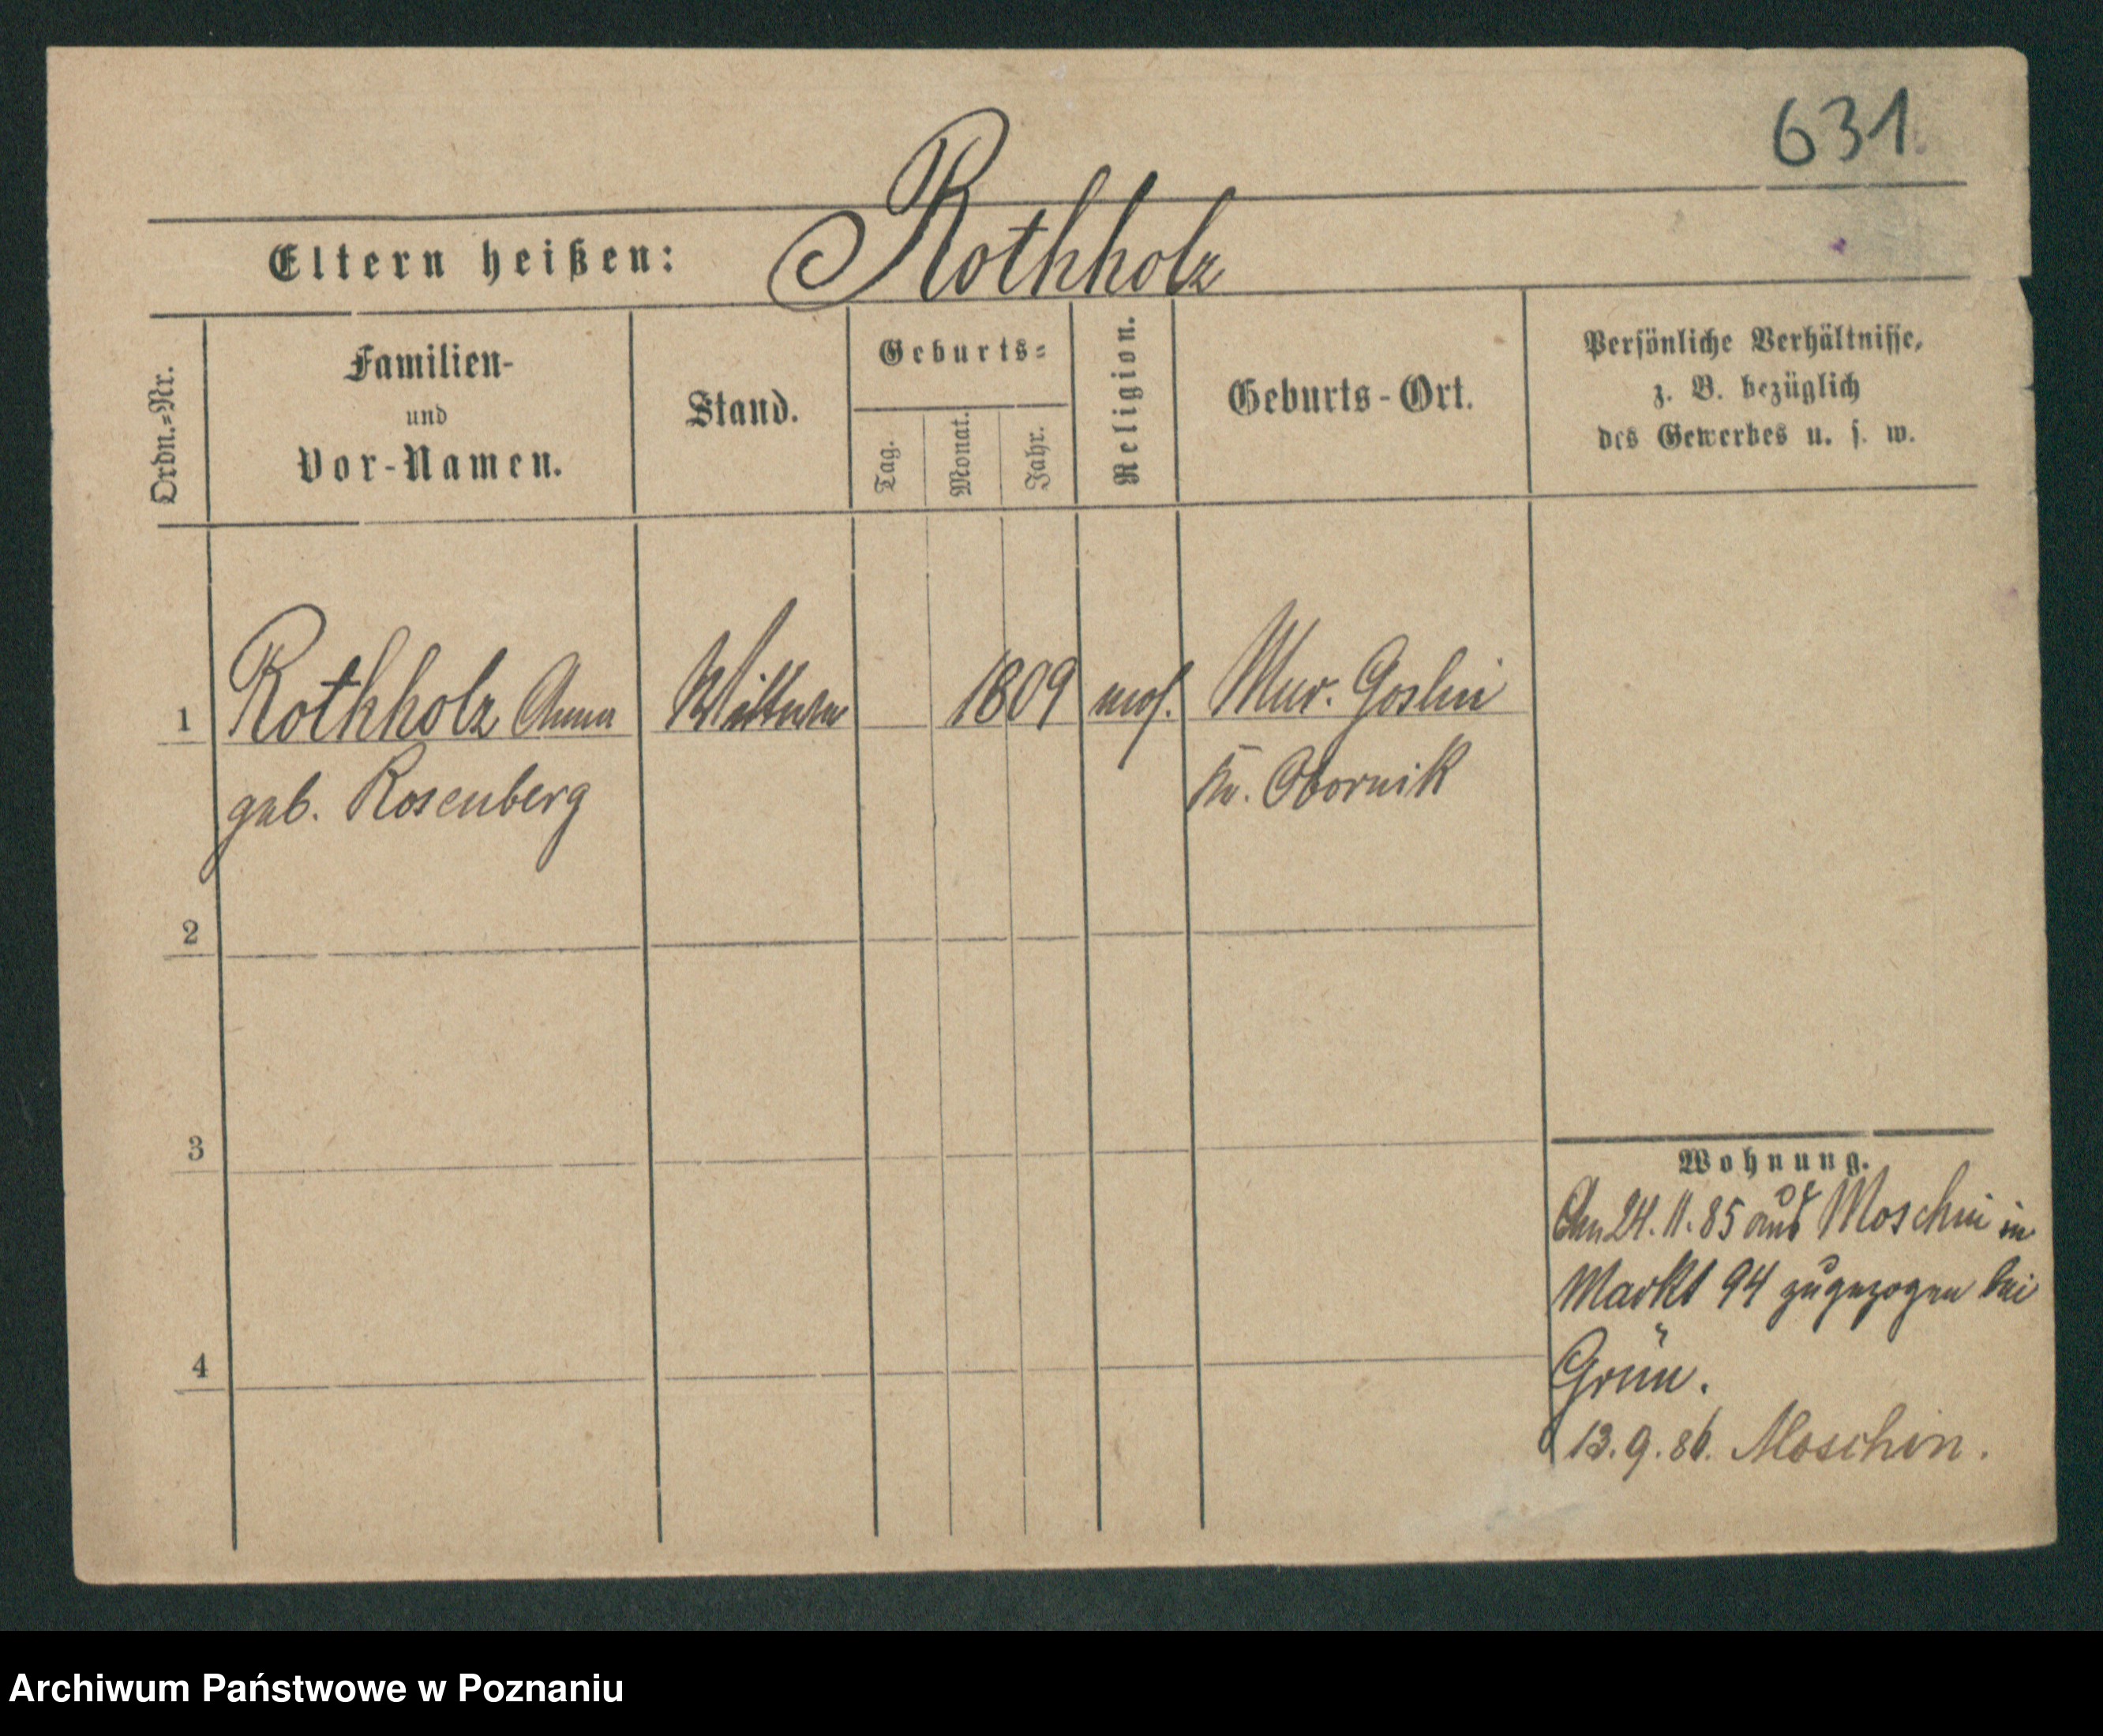 631.
Eltern heißen: Rothholz
Ordn.=Nr.
Familien-
und
Vor-Namen.
Stand.
Geburts=
Tag.
Monat.
Jahr.
Religion.
Geburts-Ort.
Persönliche Verhältnisse,
z. B. bezüglich
des Gewerbes u. s. w.
1 Rothholz Anna Wittwe 1809 mos. Mur. Goslin
geb. Rosenberg Kr. Obornik
2
3
4
Wohnung.
Am 24.11.85 aus Moschin in
Markt 94 zugezogen bei
Grün.
13.9.86. Moschin.
Archiwum Państwowe w Poznaniu